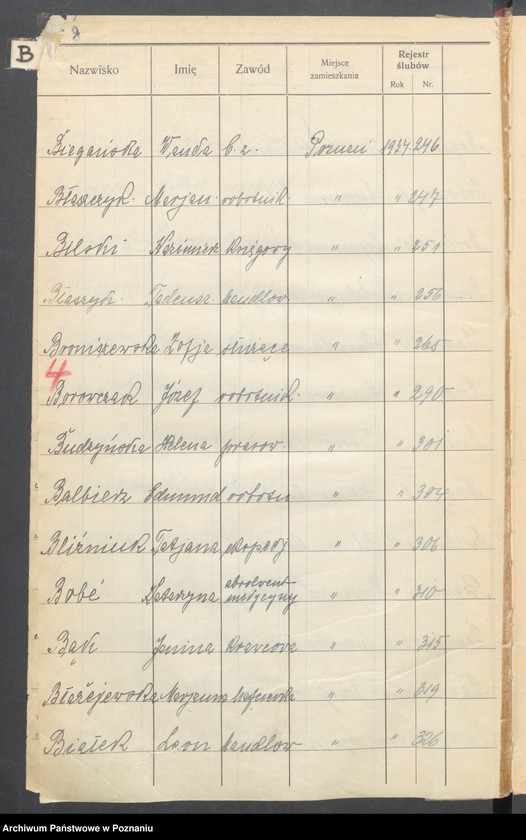 8
B
Nazwisko Imię Zawód Miejsce zamieszkania Rejestr ślubów Rok Nr.
Biegańska Wanda b. z. Poznań 1937 246
Błaszczyk Marjan robotnik " " 247
Bilski Kazimierz księgowy " " 251
Błaszyk Tadeusz handlow. " " 256
Broniszewska Zofja służące " " 265
4
Borowczak Józef robotnik. " " 290
Budzyńska Helena pracow. " " 301
Balbierz Edmund robotn " " 304
Bliźniuk Tatjana eksped " " 306
Bobé Katarzyna absolvent medycyny " " 310
Bąk Janina krawcowa " " 315
Błażejewska Marjanna " " 319
Białek Leon handlow " " 326
Archiwum Państwowe w Poznaniu